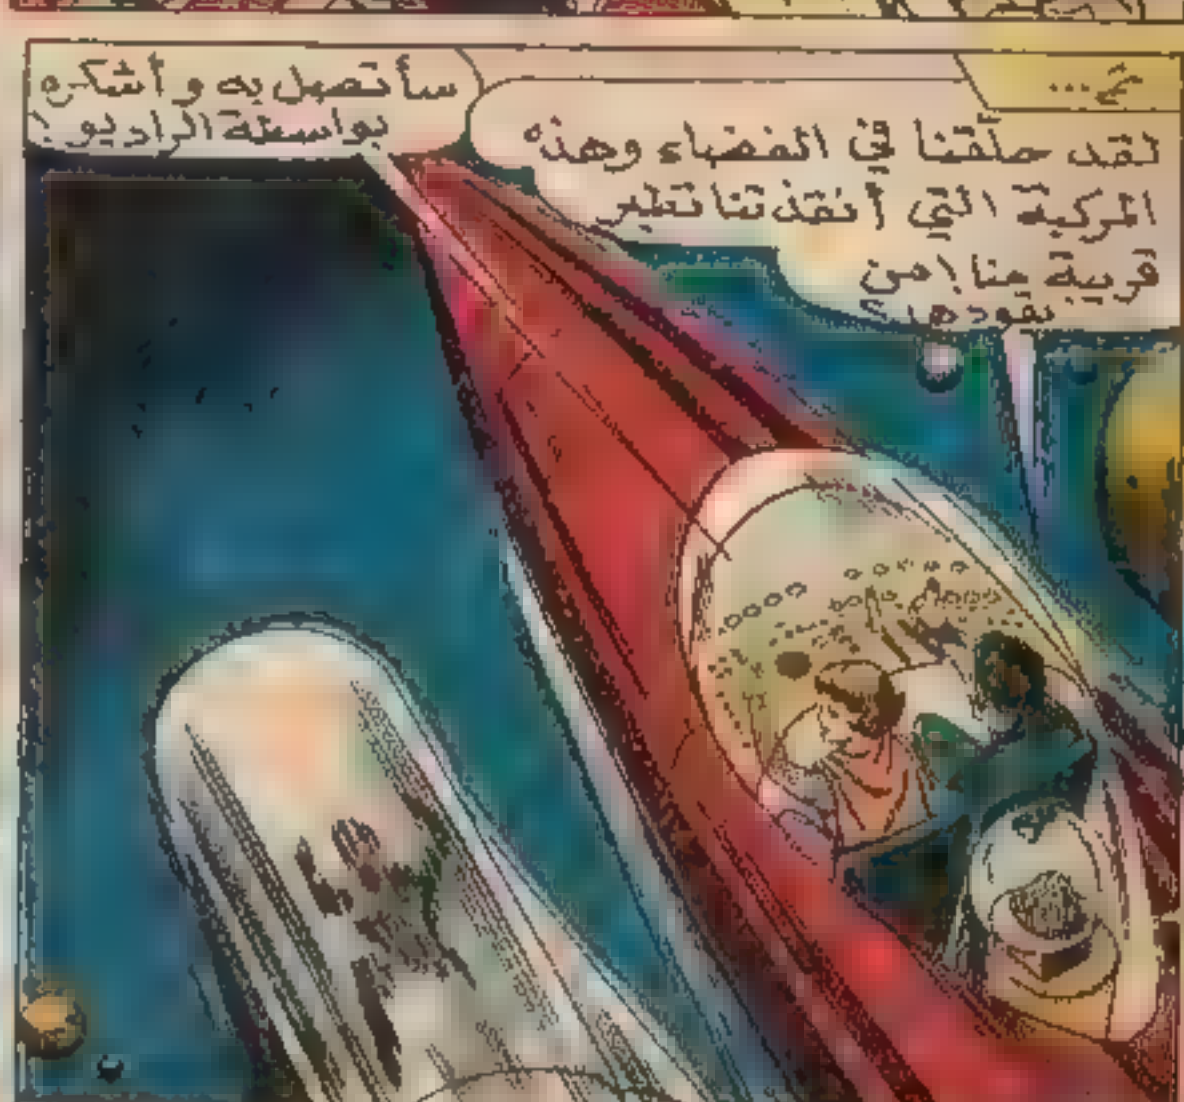 ثم...
لقد حلّقنا في الفضاء وهذه
المركبة التي أنقذتنا تطير
قريبة منا! من
يقودها؟
سأتصل به وأشكره
بواسطة الراديو!